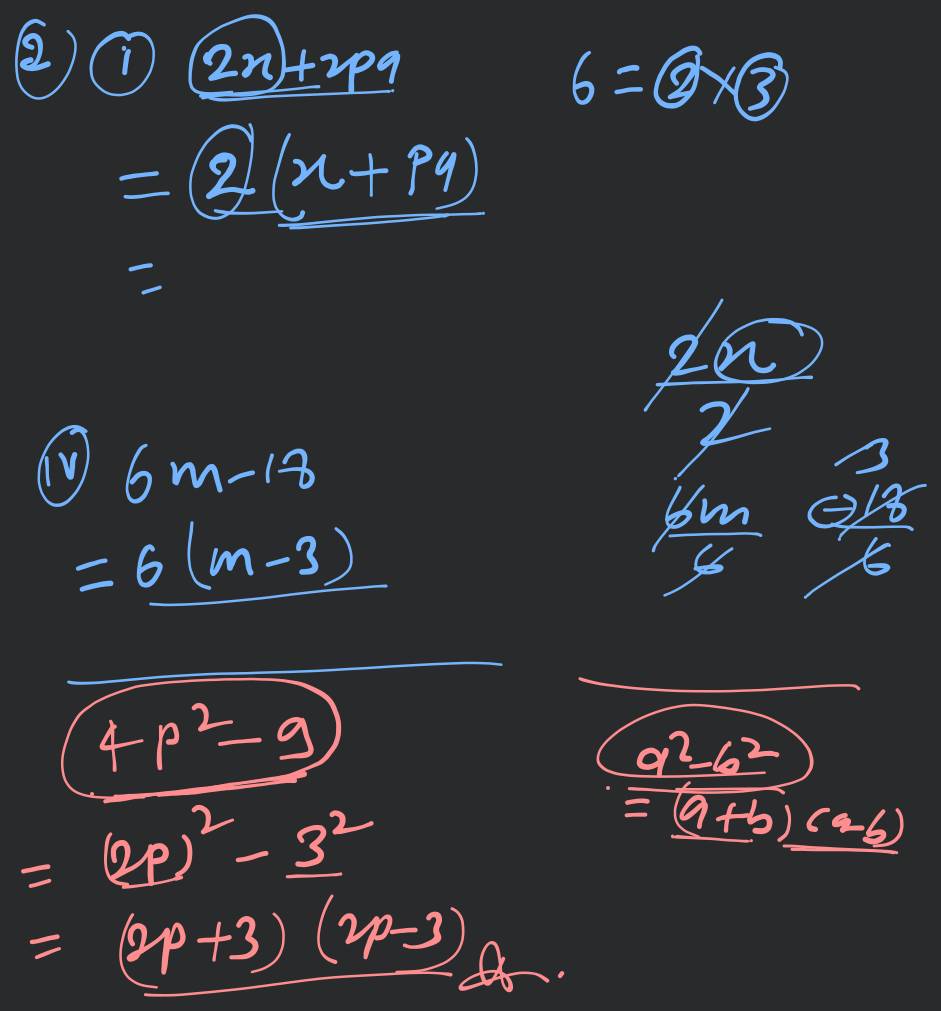 ② ⓘ 2x+2pq
6 = 2×3
= 2 (x + pq)
=
2x
2
ⓘⓥ 6m-18
= 6 (m-3)
6m
6
3
-18
6
4p²-9
= (2p)² - 3²
= (2p+3) (2p-3)
a²-b²
= (a+b) (a-b)